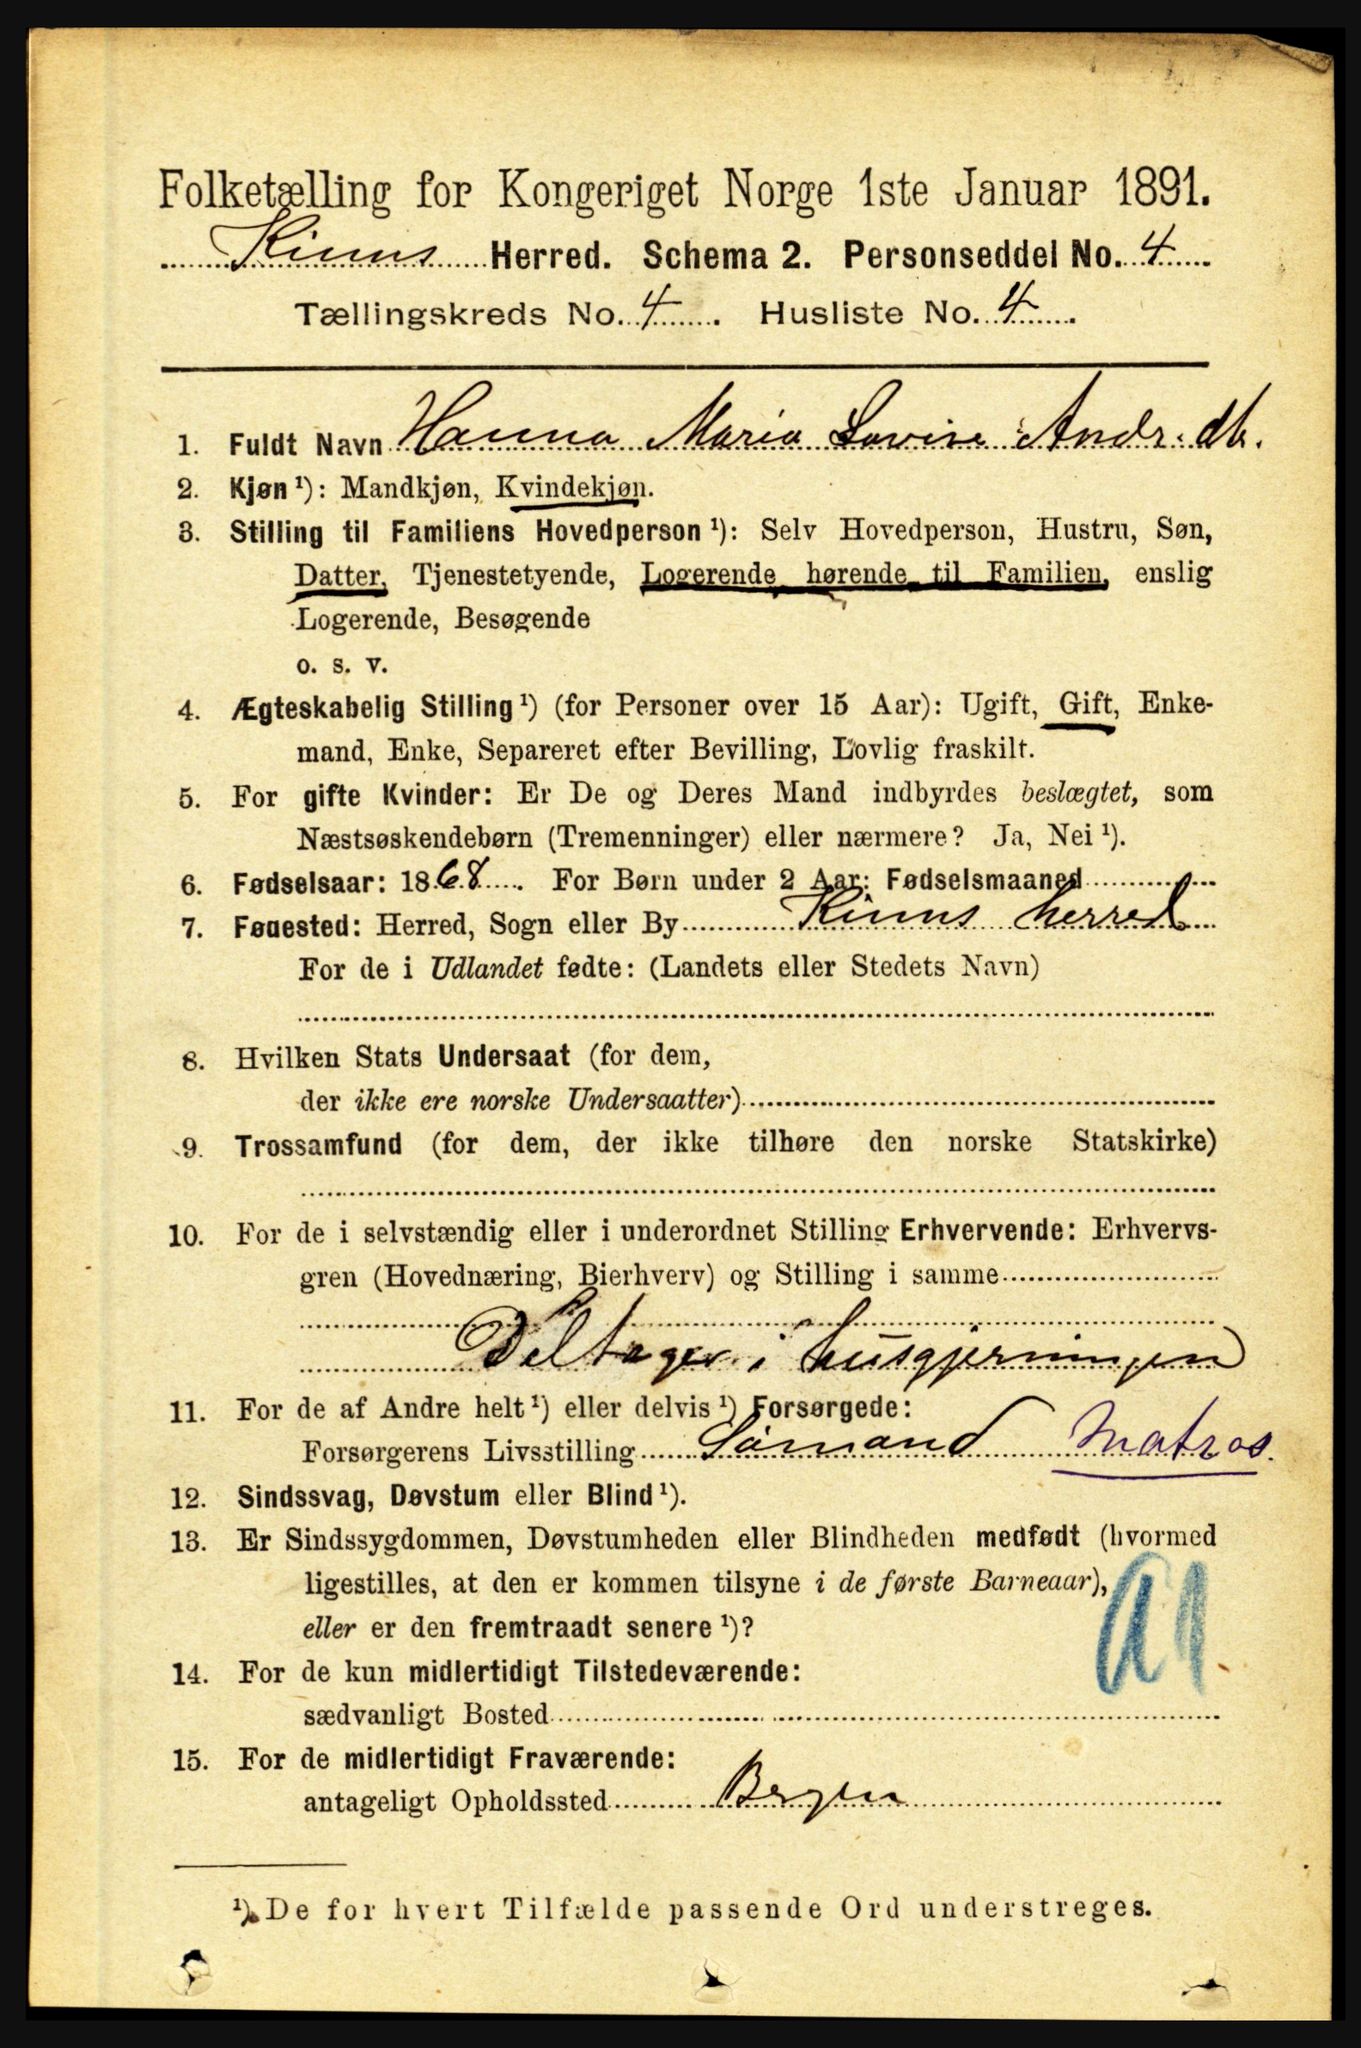 Folketælling for Kongeriget Norge 1ste Januar 1891.
Kinns Herred. Schema 2. Personseddel No. 4
Tællingskreds No. 4. Husliste No. 4.
1. Fuldt Navn Hanna Maria Lovise Andr. dtr.
2. Kjøn ¹): Mandkjøn, Kvindekjøn.
3. Stilling til Familiens Hovedperson ¹): Selv Hovedperson, Hustru, Søn,
Datter, Tjenestetyende, Logerende hørende til Familien, enslig
Logerende, Besøgende
o. s. v.
4. Ægteskabelig Stilling ¹) (for Personer over 15 Aar): Ugift, Gift, Enke-
mand, Enke, Separeret efter Bevilling, Lovlig fraskilt.
5. For gifte Kvinder: Er De og Deres Mand indbyrdes beslægtet, som
Næstsøskendebørn (Tremenninger) eller nærmere? Ja, Nei ¹).
6. Fødselsaar: 1868. For Børn under 2 Aar: Fødselsmaaned
7. Føuested: Herred, Sogn eller By Kinns herred
For de i Udlandet fødte: (Landets eller Stedets Navn)
8. Hvilken Stats Undersaat (for dem,
der ikke ere norske Undersaatter)
9. Trossamfund (for dem, der ikke tilhøre den norske Statskirke)
10. For de i selvstændig eller i underordnet Stilling Erhvervende: Erhvervs-
gren (Hovednæring, Bierhverv) og Stilling i samme
Deltager i husgjerningen
11. For de af Andre helt ¹) eller delvis ¹) Forsørgede:
Forsørgerens Livsstilling Sømand Matros.
12. Sindssvag, Døvstum eller Blind ¹).
13. Er Sindssygdommen, Døvstumheden eller Blindheden medfødt (hvormed
ligestilles, at den er kommen tilsyne i de første Barneaar),
eller er den fremtraadt senere ¹)?
14. For de kun midlertidigt Tilstedeværende:
sædvanligt Bosted
15. For de midlertidigt Fraværende:
antageligt Opholdssted Bergen
¹) De for hvert Tilfælde passende Ord understreges.